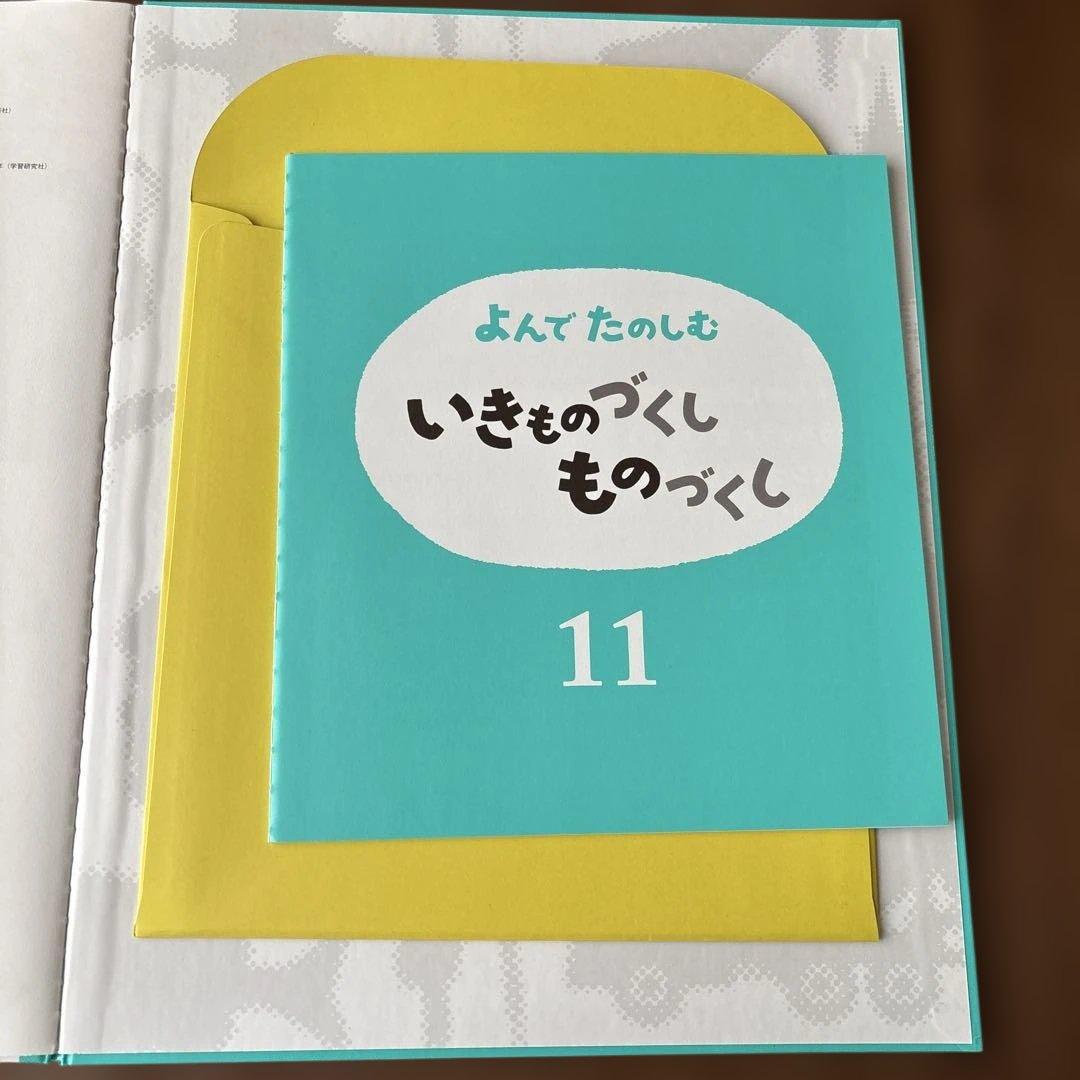 年（学習研究社）
よんで たのしむ
いきものづくし
ものづくし
11